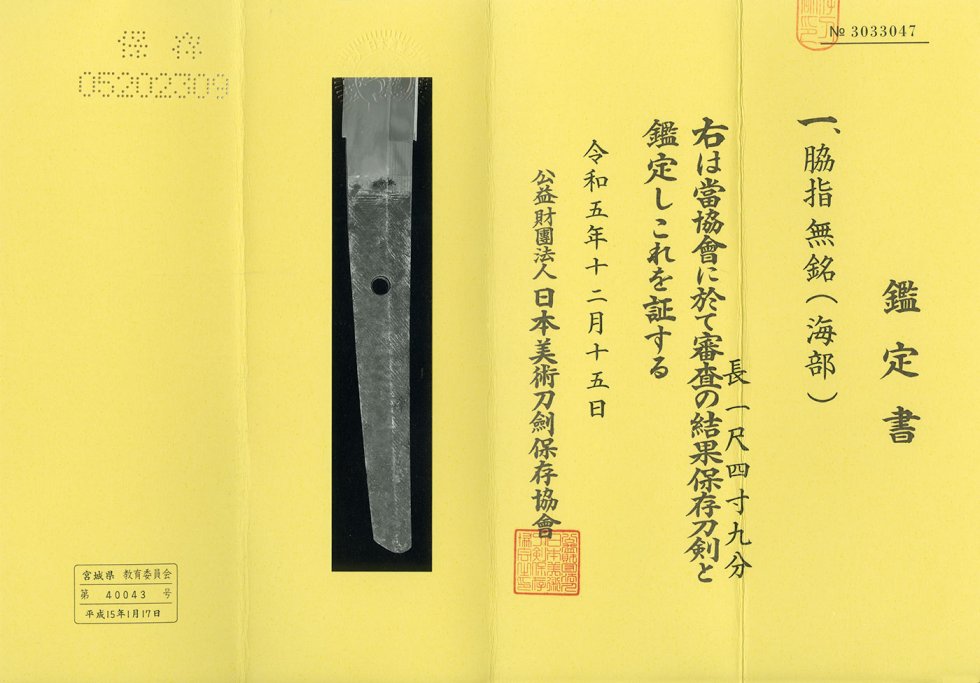 № 3033047
鑑定書
一、脇指 無銘(海部)
長一尺四寸九分
右は當協會に於て審査の結果保存刀剣と
鑑定しこれを証する
令和五年十二月十五日
公益財團法人 日本美術刀劍保存協會
保存
05202309
宮城県 教育委員会
第 40043 号
平成15年1月17日